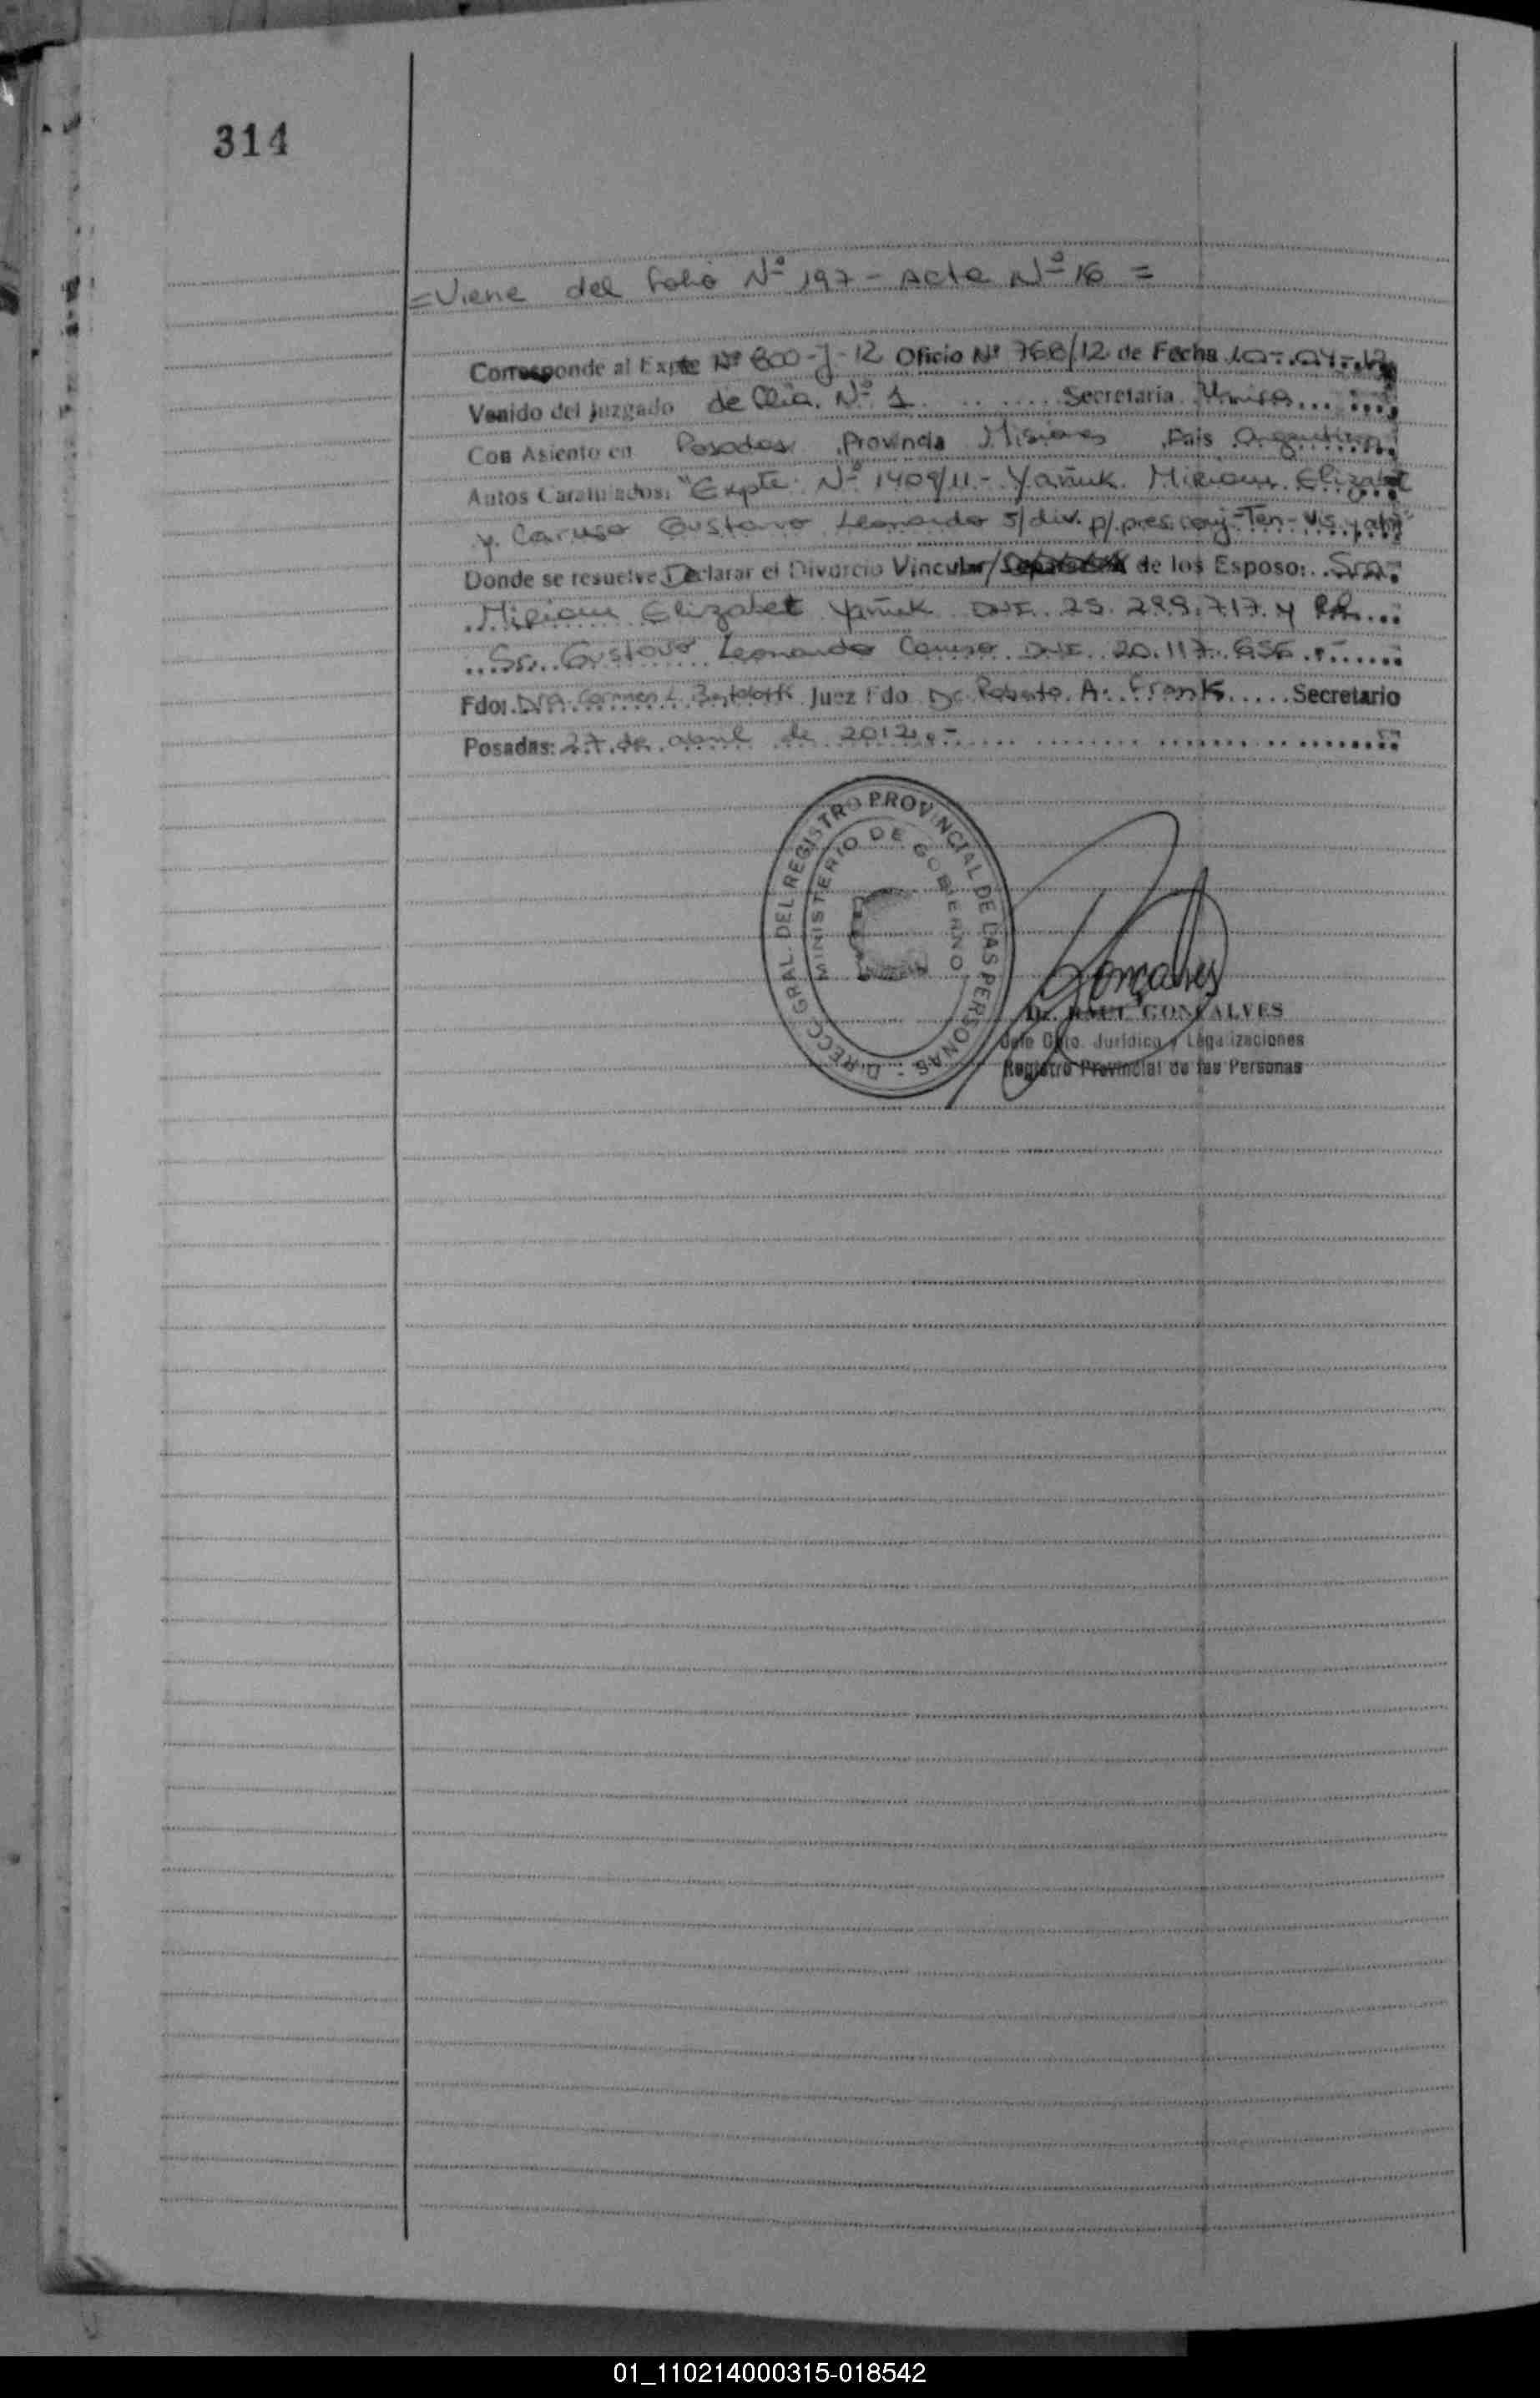 314
=Viene del folio Nº 197 - Acta Nº 16 =
Corresponde al Expte Nº 800-J-12 Oficio Nº 768/12 de Fecha 10-.04-.12
Venido del Juzgado de Flia. Nº 1 ........ Secretaria Unica......
Con Asiento en Posadas Provincia Misiones Pais Argentina
Autos Caratulados: "Expte. Nº 1409/11.- Yañuk Miriam Elizabet
y Caruso Gustavo Leonardo s/div. p/pres. conj-Ten-Vis. y
Donde se resuelve Declarar el Divorcio Vincular/ de los Esposo: Sra.
Miriam Elizabet Yañuk DNI. 25.299.717 y
Sr. Gustavo Leonardo Caruso DNI. 20.117.656.-
Fdo: DRA. Carmen L. Juez Fdo Dr. Roberto A. Frank..... Secretario
Posadas: 27 de abril de 2012.-
DIRECC. GRAL. DEL REGISTRO PROVINCIAL DE LAS PERSONAS -
MINISTERIO DE GOBIERNO
Goncalves
Dr. RAUL GONCALVES
Jefe Dpto. Juridico y Legalizaciones
Registro Provincial de las Personas
01_110214000315-018542